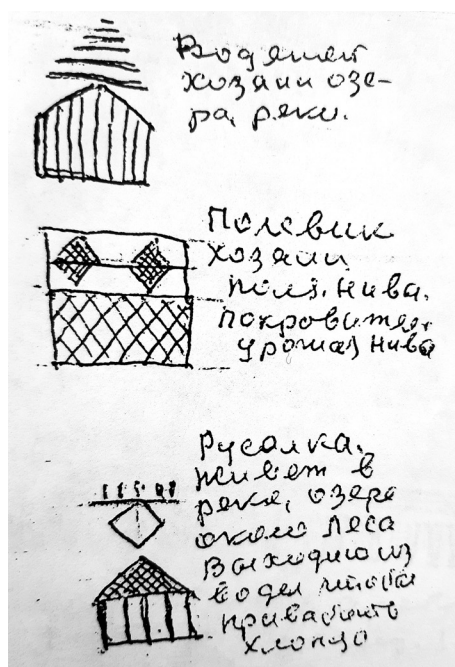 Водяней
хозаин озе-
ра, реки.
Полевик
хозаин
поля. Нива.
покровител.
урожая Нива
Русалка.
живет в
реке, озере
около Леса
Выходит из
воды чтобы
привабить
хлопцо